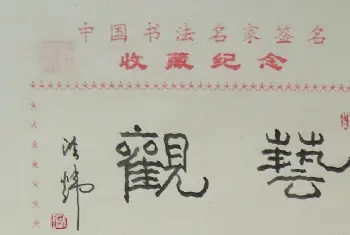 中国书法名家签名
收藏纪念
藝觀